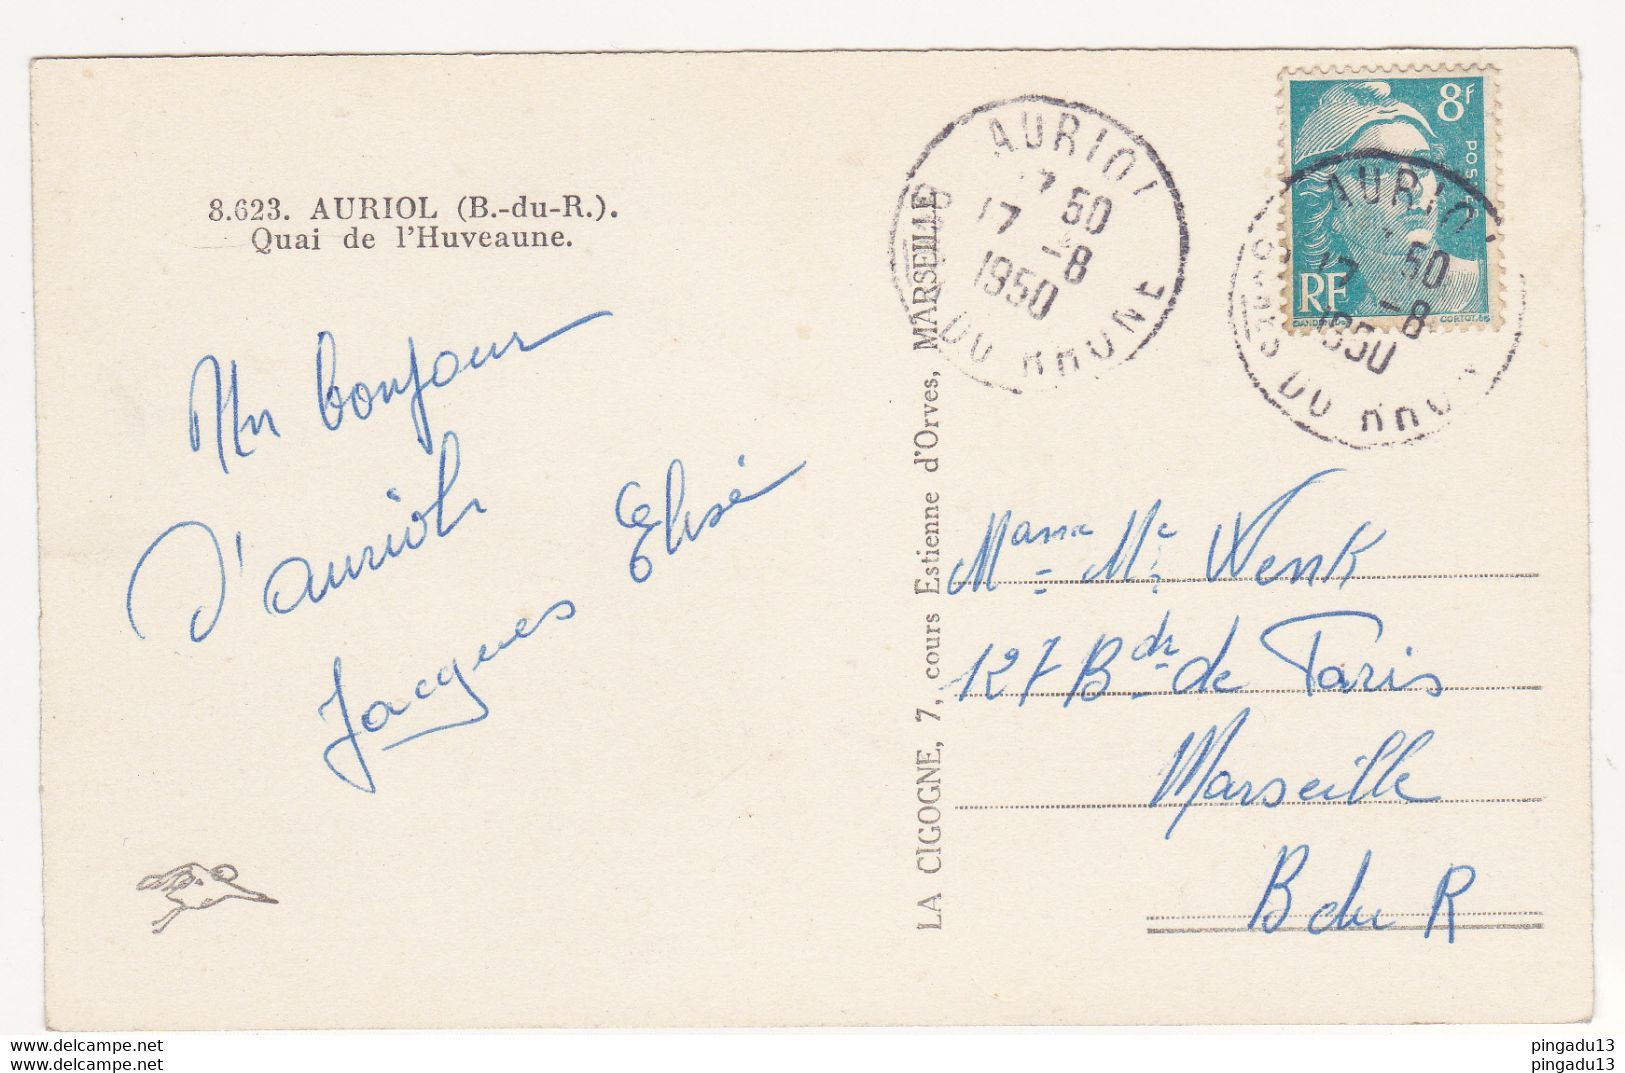 8.623. AURIOL (B.-du-R.).
Quai de l'Huveaune.
Un bonjour
d'auriol
Jacques Elisé
LA CIGOGNE, 7, cours Estienne d'Orves, MARSEILLE
AURIOL
17 50
17 -8
1950
DU RHONE
8f
POSTES
RF
CORTOT.SC
AURIOL
17 50
17 -8
1950
DU RHONE
Mr Wenk
127 Bd de Paris
Marseille
B du R
www.delcampe.net
www.delcampe.net
pingadu13
pingadu13